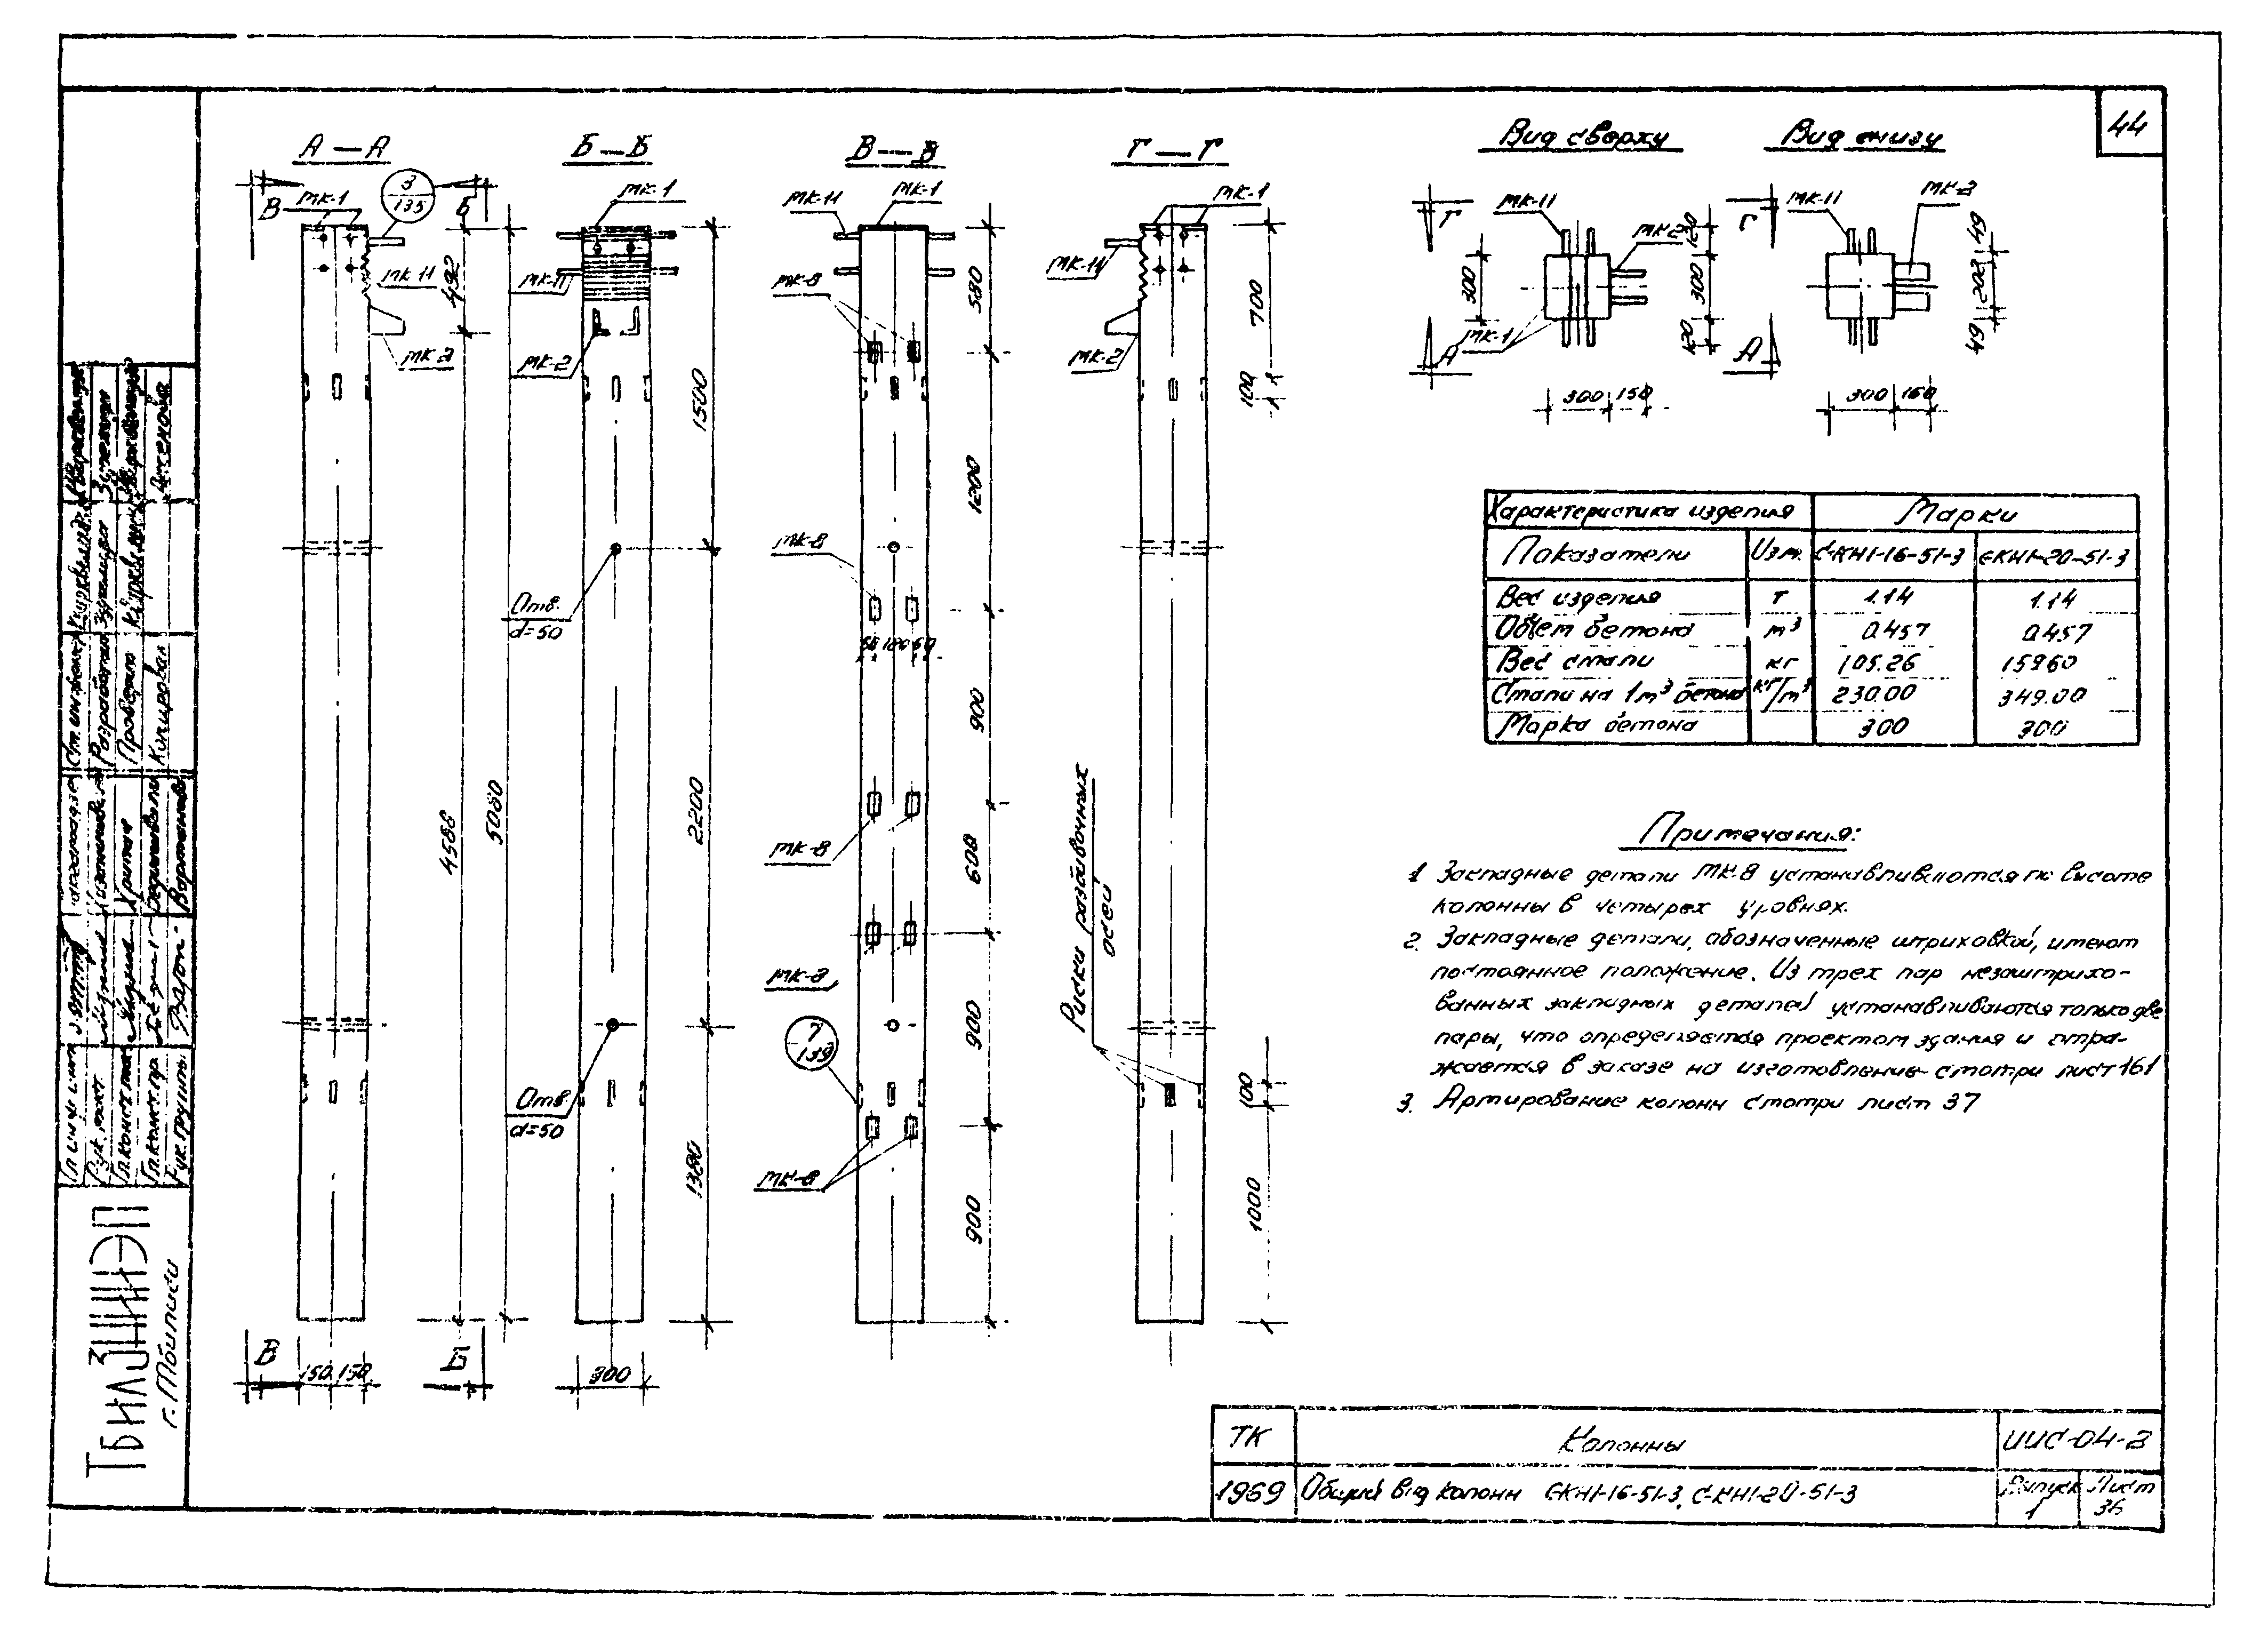 44
А — А
Б — Б
В — В
Г — Г
Вид сверху
Вид снизу
МК-1
3
135
В
Б
МК-11
492
МК-2
4588
5080
В
Б
150 150
МК-1
МК-11
МК-2
1500
Отв.
d=50
2200
Отв.
d=50
1380
300
МК-11
МК-1
МК-8
580
1200
МК-8
60 180 60
900
МК-8
600
МК-8
7
139
900
МК-8
900
МК-1
МК-11
МК-2
700
100
Риски разбивочных
осей
100
1000
Г
МК-11
МК-2
120
300
300
120
МК-1
А
300 150
Г
МК-11
МК-2
64
202
64
А
300 160
Характеристика изделия Марки
Показатели Изм. СКН1-16-51-3 СКН1-20-51-3
Вес изделия т 1.14 1.14
Объем бетона м³ 0.457 0.457
Вес стали кг 105.26 159.60
Стали на 1м³ бетона кг/м³ 230.00 349.00
Марка бетона 300 300
Примечания:
1 Закладные детали МК-8 устанавливаются по высоте
колонны в четырех уровнях.
2. Закладные детали, обозначенные штриховкой, имеют
постоянное положение. Из трех пар незаштрихо-
ванных закладных деталей устанавливаются только две
пары, что определяется проектом здания и отра-
жается в заказе на изготовление смотри лист 161
3. Армирование колонн смотри лист 37
ТК Колонны ИИС-04-2
1969 Общий вид колонн СКН1-16-51-3, СКН1-20-51-3 Выпуск 1 Лист 36
Гл. конст. пр.
Рук. группы
Вартанова
Ст. инженер
Разработал
Проверил
Копировал
Аксенова
ТбилЗНИИЭП
г. Тбилиси